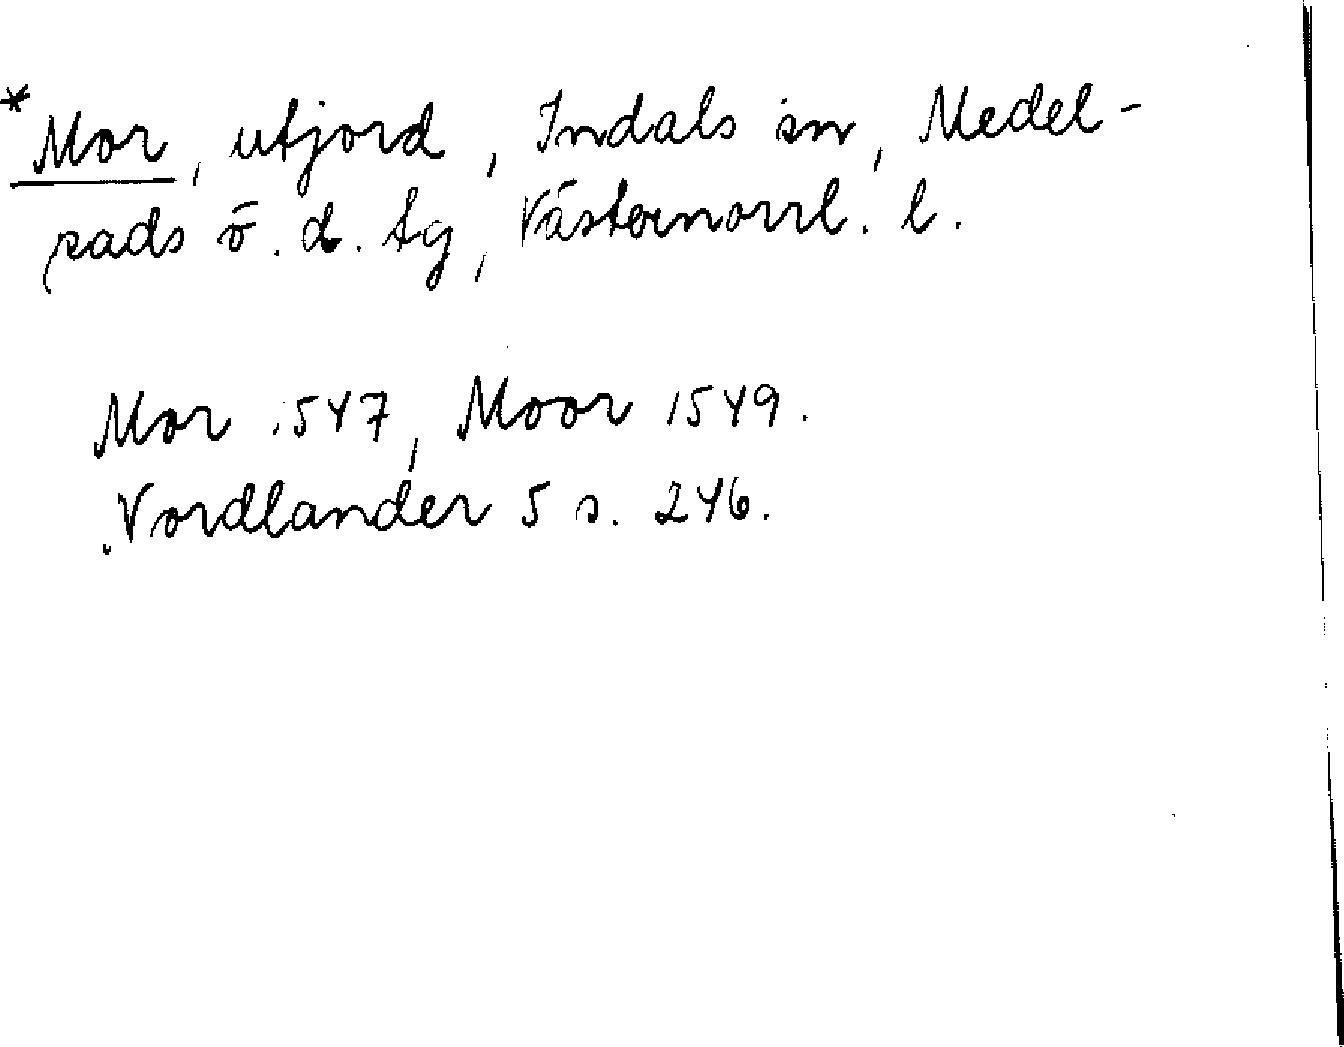 *Mor, utjord, Indals sn, Medel-
pads ö. d. tg, Västernorrl. l.
Mor 1547, Moor 1549.
Nordlander 5 s. 246.